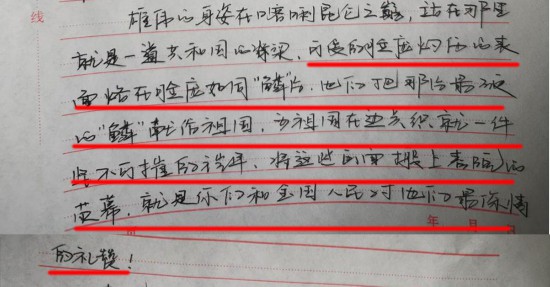 线
雄伟的身姿在喀喇昆仑之巅,站在那里
就是一道共和国的脊梁,可爱的灼伤的表
面烙在如同“鳞”片,他们把那份最硬
的“鳞”献给祖国,为祖国在边关织就一件
坚不可摧的铠甲,将这些画面搬上春晚的
荧幕,就是你们和全国人民对他们最深情
年 月 日
的礼赞!